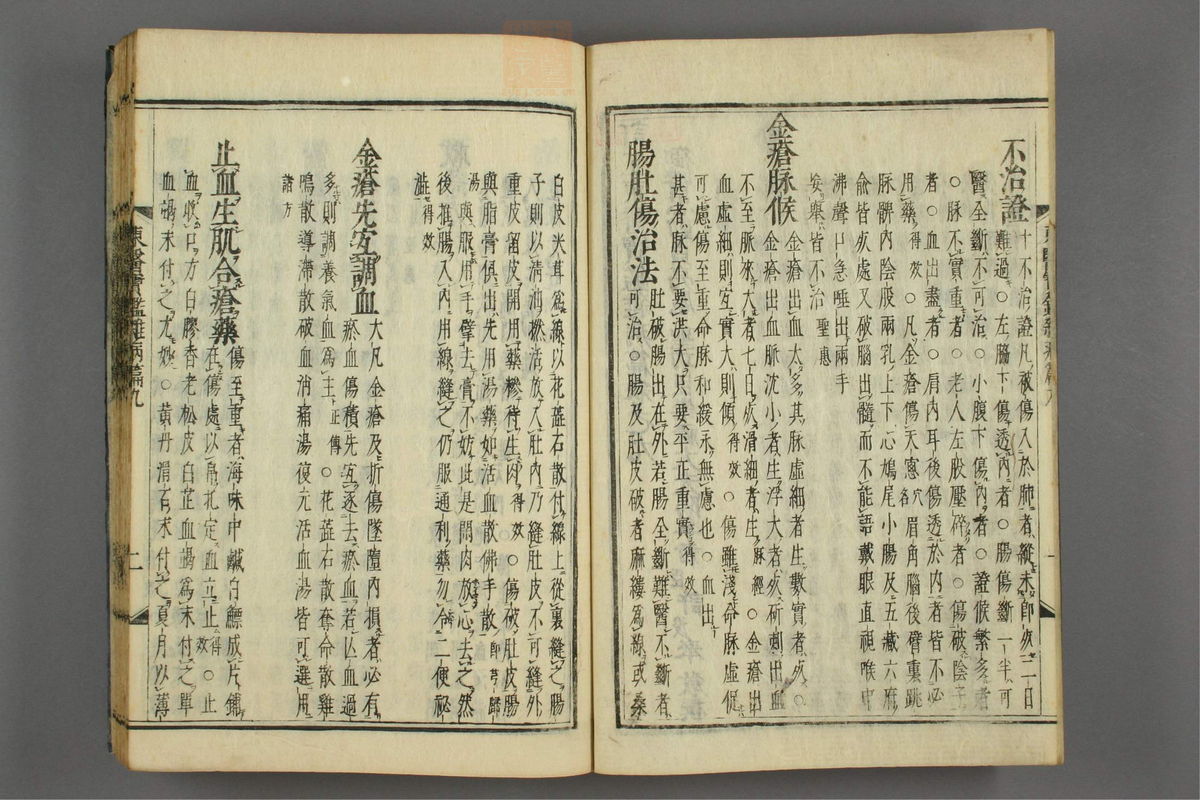 不治證 十不治證凡被傷入於肺者縱未即死二七日
難過○左脇下傷透內者○腸傷斷一半可
醫全斷不可治○小腹下傷內者○證候繁多者
○脉不實重者○老人左股壓碎者○傷破陰子
者○血出盡者○肩內耳後傷透於內者皆不必
用藥得效○凡金瘡傷天窓穴名眉角腦後臂裏跳
脉髀內陰股兩乳上下心鳩尾小腸及五臟六府
兪皆死處又破腦出髓而不能語戴眼直視喉中
沸聲口急唾出兩手
妄擧皆不治聖惠
金瘡脉候 金瘡出血太多其脉虛細者生數實者死○
金瘡出血脉沈小者生浮大者死○斫刺出血
不至脉來大者七日死滑細者生脉經○金瘡出
血虛細則宜實大則傾得效○傷雖淺命脉虛促
可慮傷至重命脉和緩永無慮也○血出
甚者脉不要洪大只要平正重實得效
腸肚傷治法 肚破腸出在外若腸全斷難醫不斷者
可治○腸及肚皮破者麻縷爲線或桑
白皮尖茸爲線以花蘂石散付線上從裏縫之腸
子則以淸油撚活放入肚內乃縫肚皮不可縫外
重皮留皮開用藥糝待生肉得效○傷破肚皮腸
與脂膏俱出先用湯藥如活血散佛手散卽芎歸
湯與服用手擘去膏不妨此是閑肉放心去之然
後推腸入內用線縫之仍服通利藥勿令二便秘
澁得效
金瘡先宜調血 大凡金瘡及折傷墜墮內損者必有
瘀血傷積先宜逐去瘀血若亡血過
多則調養氣血爲主正傳○花蘂石散奪命散雞
鳴散導滯散破血消痛湯復元活血湯皆可選用
諸方
止血生肌合瘡藥 傷至重者海味中鹹白鰾成片鋪
在傷處以帛扎定血立止得效○止
血收口方白膠香老松皮白芷血竭爲末付之單
血竭末付之尤妙○黃丹滑石末付之夏月以薄
東醫寶鑑雜病篇九